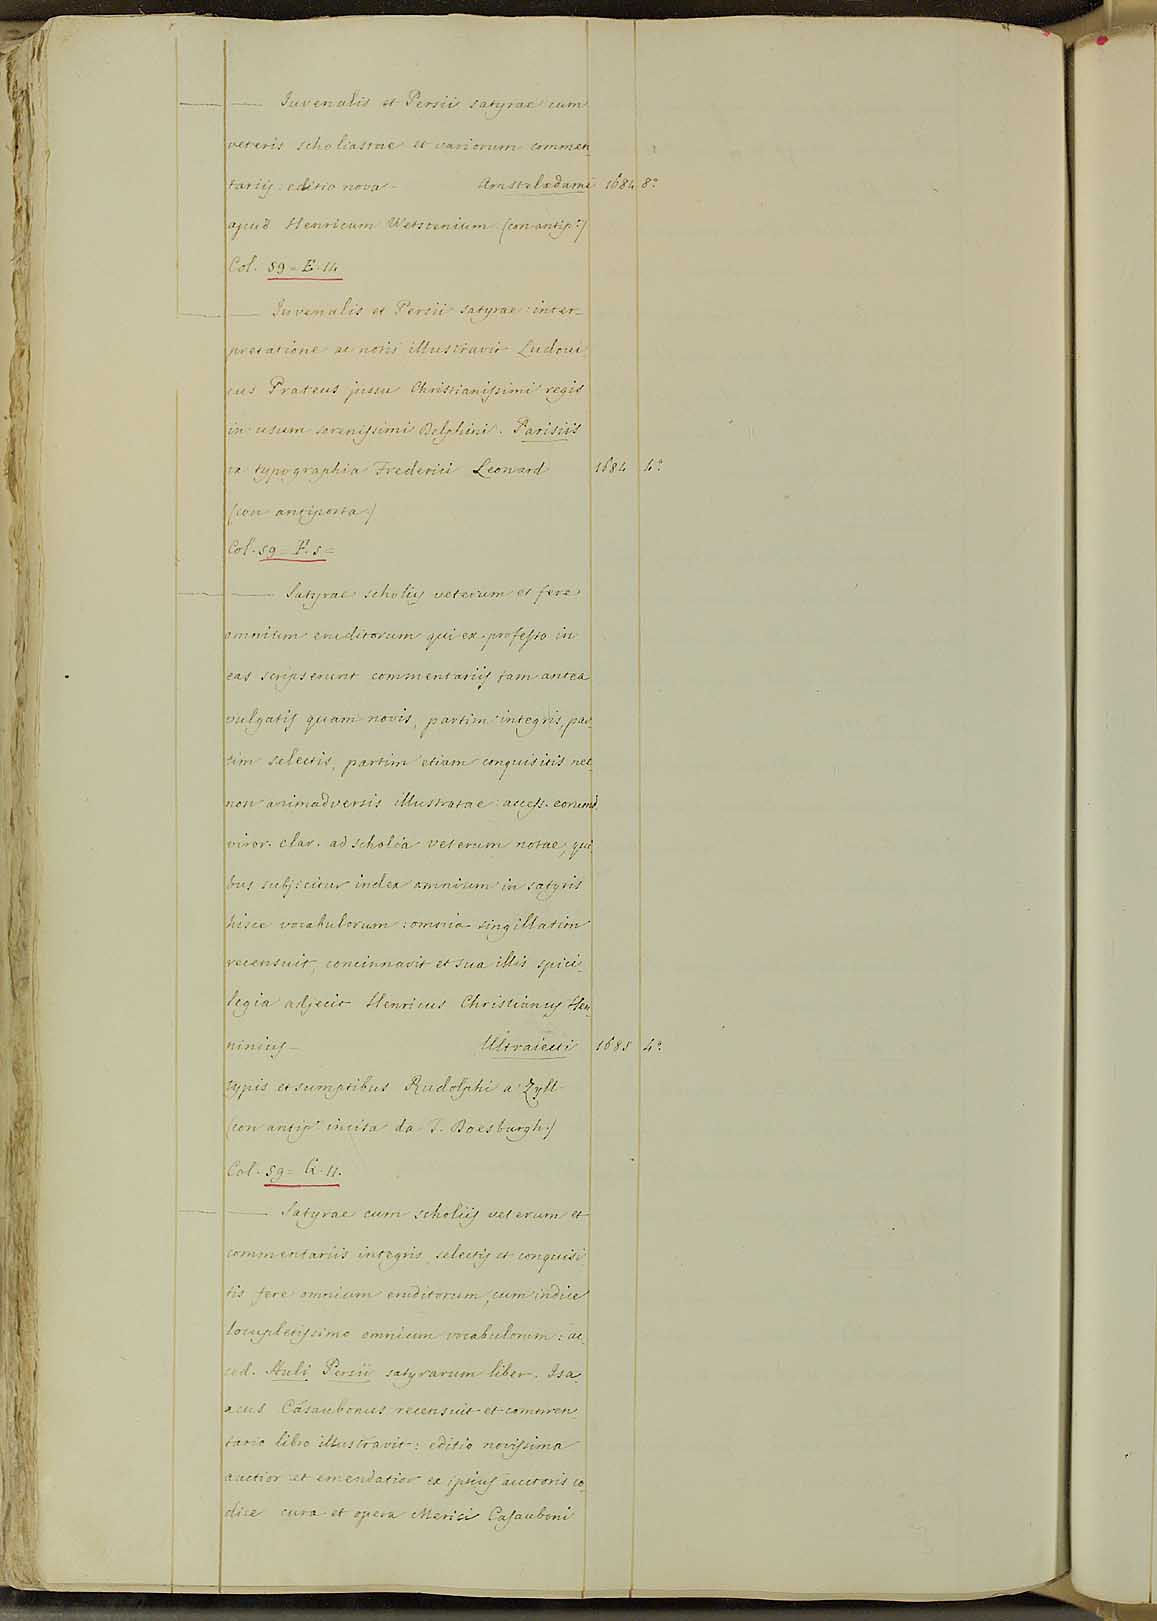 — Juvenalis et Persii satyrae cum
veteris scholiastae et variorum commen_
tariis: editio nova - Amstelædami 1684 8.°
apud Henricum Wetstenium (con antip.ª)
Col. 59 = E. 14
— Juvenalis et Persii satyrae: inter_
pretatione ac notis illustravit Ludovi
cus Prateus jussu Christianissimi regis
in usum serenissimi Delphini. Parisiis
ex typographia Frederici Leonard 1684 4.°
(con antiporta)
Col. 59 = F. 5 =
— Satyrae scholiis veterum et fere
omnium eruditorum qui ex professo in
eas scripserunt commentariis tam antea
vulgatis quam novis, partim integris, par_
tim selectis, partim etiam conquisitis nec_
non animadversis illustratae: access. eorumd.
viror. clar. ad scholia veterum notae, qui_
bus subjicitur index omnium in satyris
hisce vocabulorum: omnia singillatim
recensuit, concinnavit et sua illis spici_
legia adjecit Henricus Christianus Hen_
ninius - Ultraiecti 1685 4.°
typis et sumptibus Rudolphi a Zyll
(con antip.ª incisa da J. Doesburgh)
Col. 59 = G. 11.
— Satyrae cum scholiis veterum et
commentariis integris, selectis et conquisi
tis fere omnium eruditorum, cum indice
locupletissimo omnium vocabulorum: ac_
ced. Auli Persii satyrarum liber. Isa_
acus Casaubonus recensuit et commen_
tario libro illustravit: editio novissima
auctior et emendatior ex ipsius auctoris co_
dice cura et opera Merici Casauboni